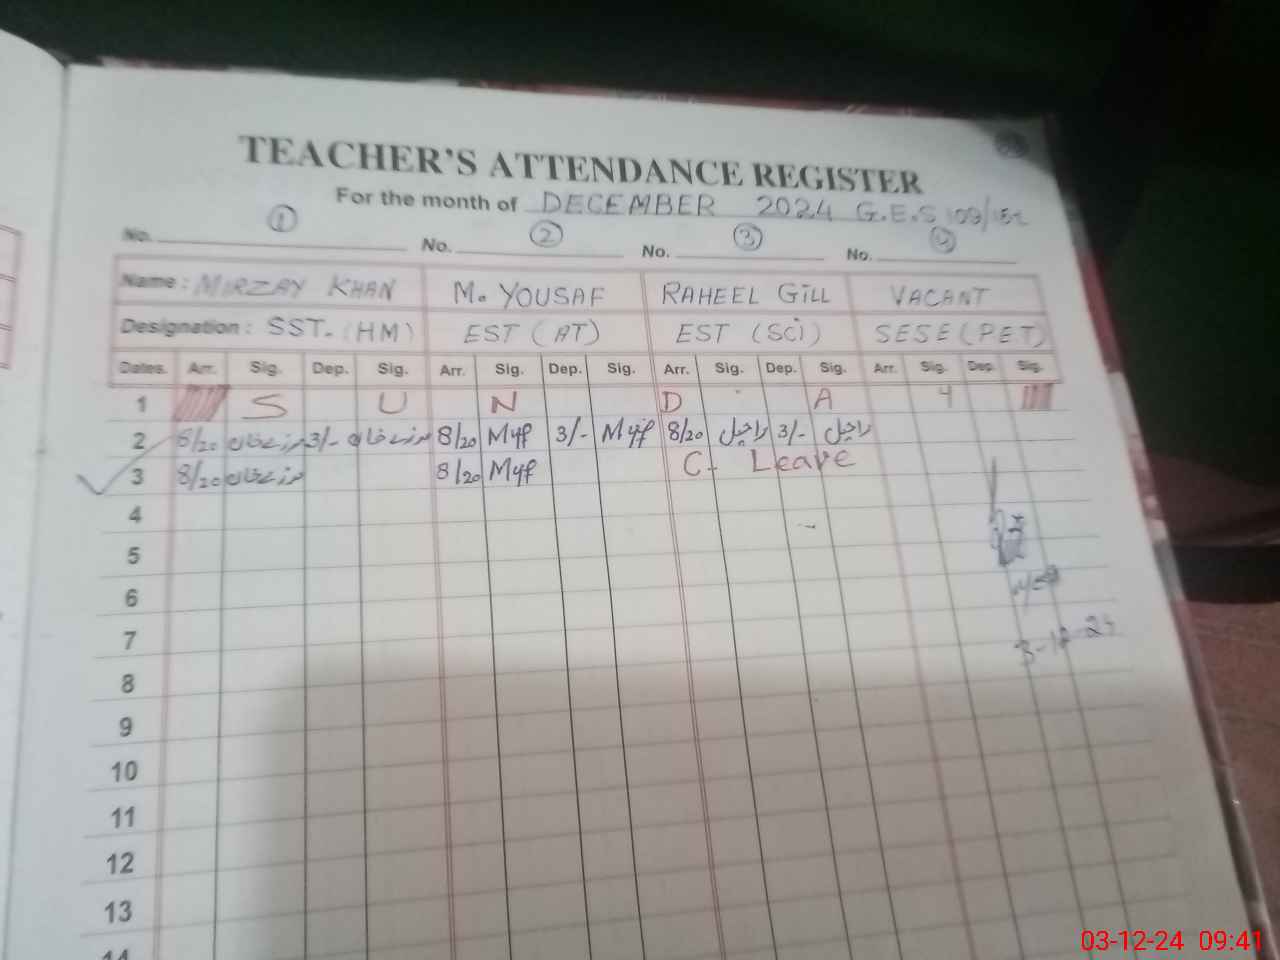 TEACHER'S ATTENDANCE REGISTER
For the month of DECEMBER 2024 G.E.S 109/15L
No. 1 No. 2 No. 3 No. 4
Name: MIRZAY KHAN M. YOUSAF RAHEEL GILL VACANT
Designation: SST. (HM) EST (AT) EST (SCi) SESE (PET)
Dates. Arr. Sig. Dep. Sig. Arr. Sig. Dep. Sig. Arr. Sig. Dep. Sig. Arr. Sig. Dep. Sig.
1 S U N D A Y
2 8/20 مرزے خان 3/- مرزے خان 8/20 Myf 3/- Myf 8/20 راحیل 3/- راحیل
3 8/20 مرزے خان 8/20 Myf C. Leave
4
5
6
7
3-12-24
8
9
10
11
12
13
14
03-12-24 09:41